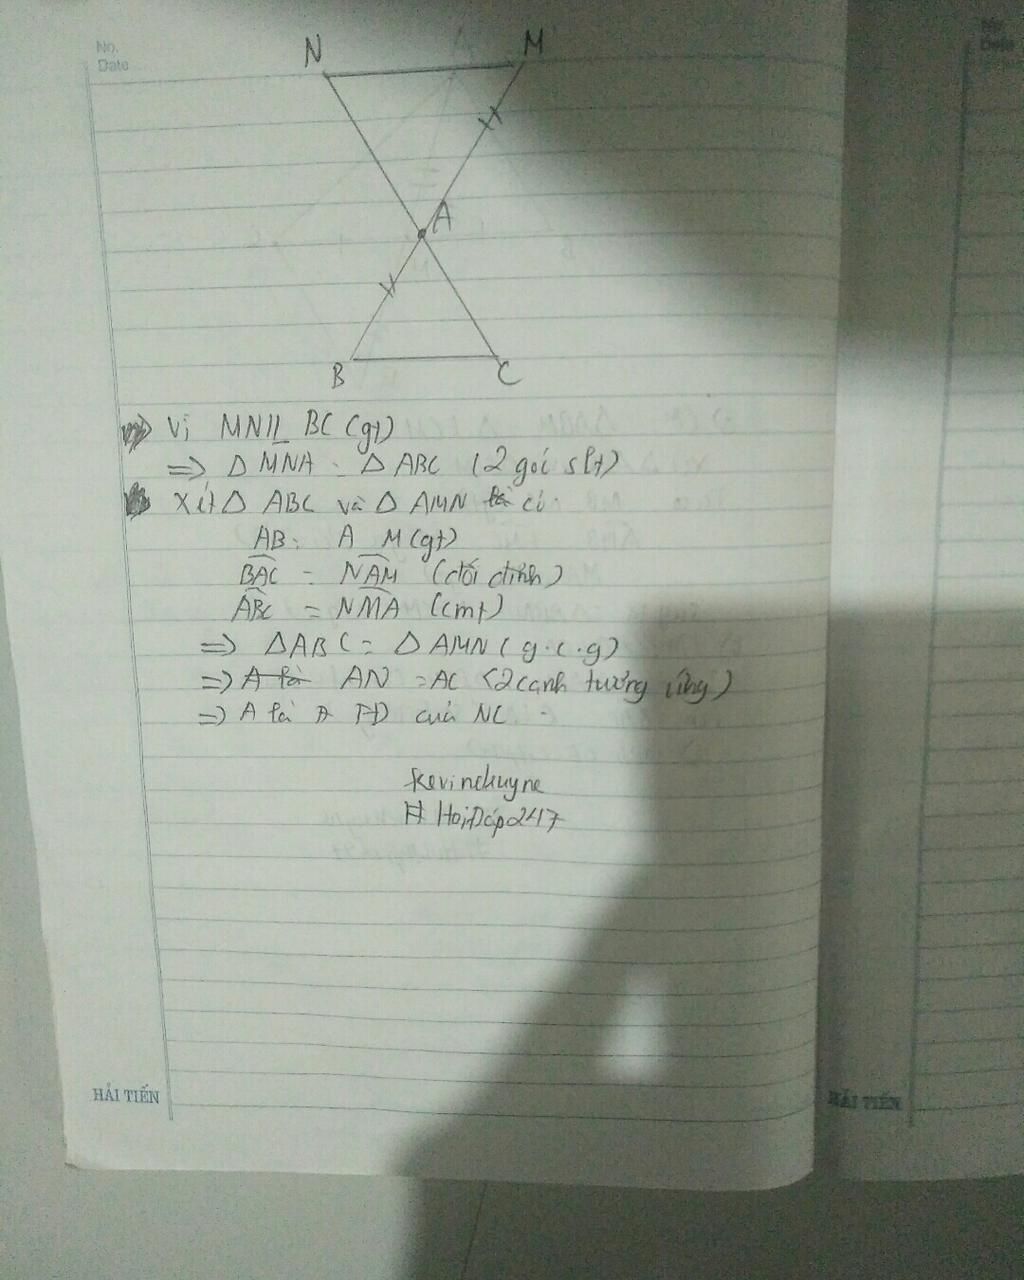 No.
Date
No.
Date
N
M
A
B
C
Vì MN // BC (gt)
=> Δ MNA = Δ ABC (2 góc slt)
Xét Δ ABC và Δ AMN có:
AB = AM (gt)
BAC = NAM (đối đỉnh)
ABC = NMA (cmt)
=> ΔABC = Δ AMN (g.c.g)
=> AN = AC (2 cạnh tương ứng)
=> A là TĐ của NC
Kevinchuyne
# HoiDap247
HẢI TIẾN
HẢI TIẾN